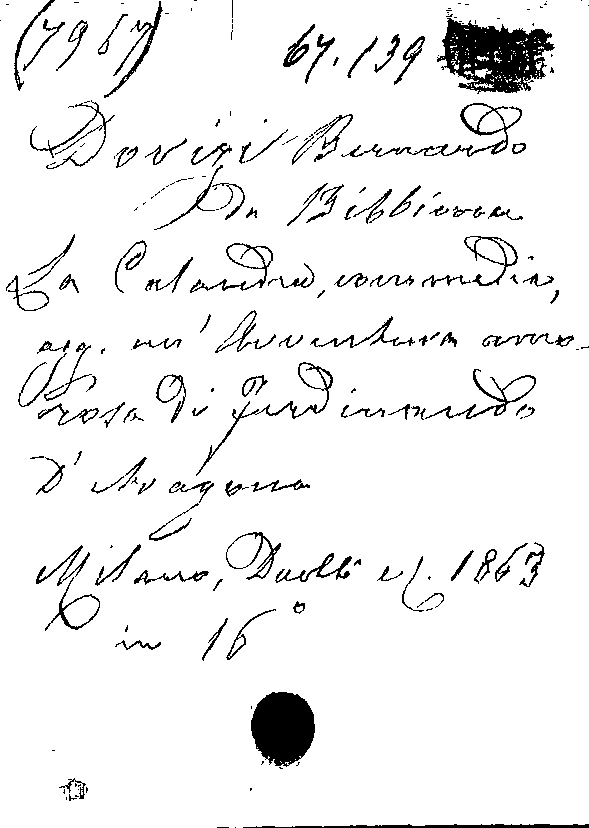 (7967) 67.139
Dovizi Bernardo
Da Bibbiena
La Calandra, commedia,
agg. un' Avventura amo-
rosa di Ferdinando
D' Aragona
Milano, Daelli ed. 1863
in 16°